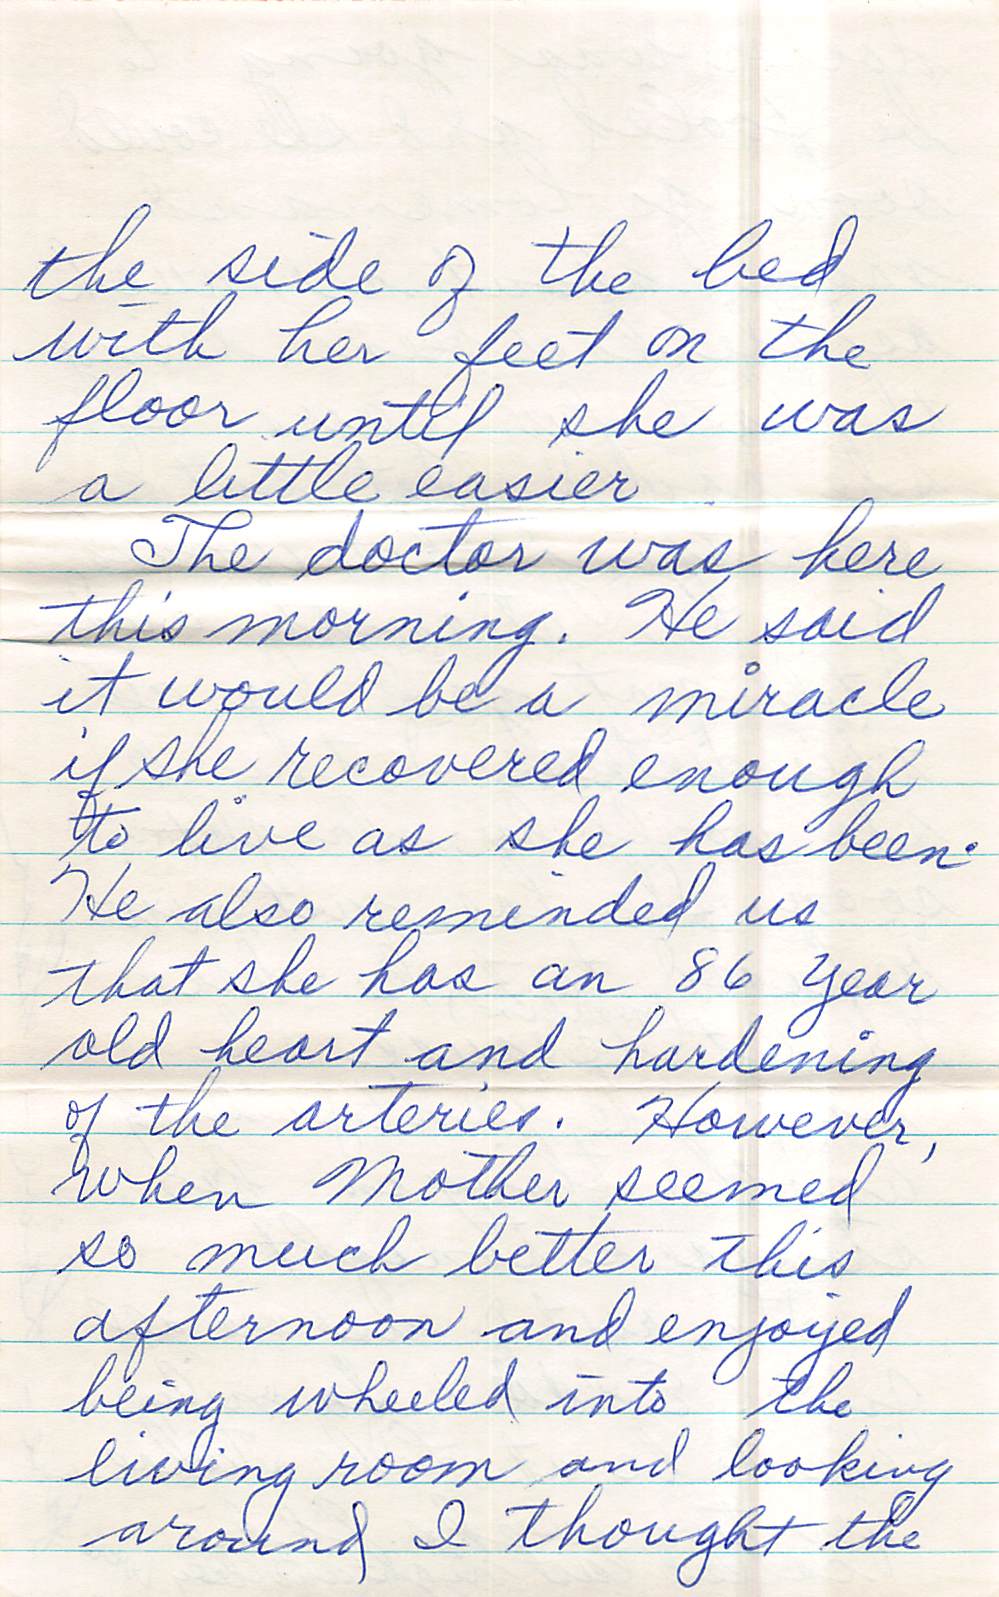 the side of the bed
with her feet on the
floor until she was
a little easier
The doctor was here
this morning. He said
it would be a miracle
if she recovered enough
to live as she has been.
He also reminded us
that she has an 86 year
old heart and hardening
of the arteries. However,
when Mother seemed
so much better this
afternoon and enjoyed
being wheeled into the
living room and looking
around I thought the